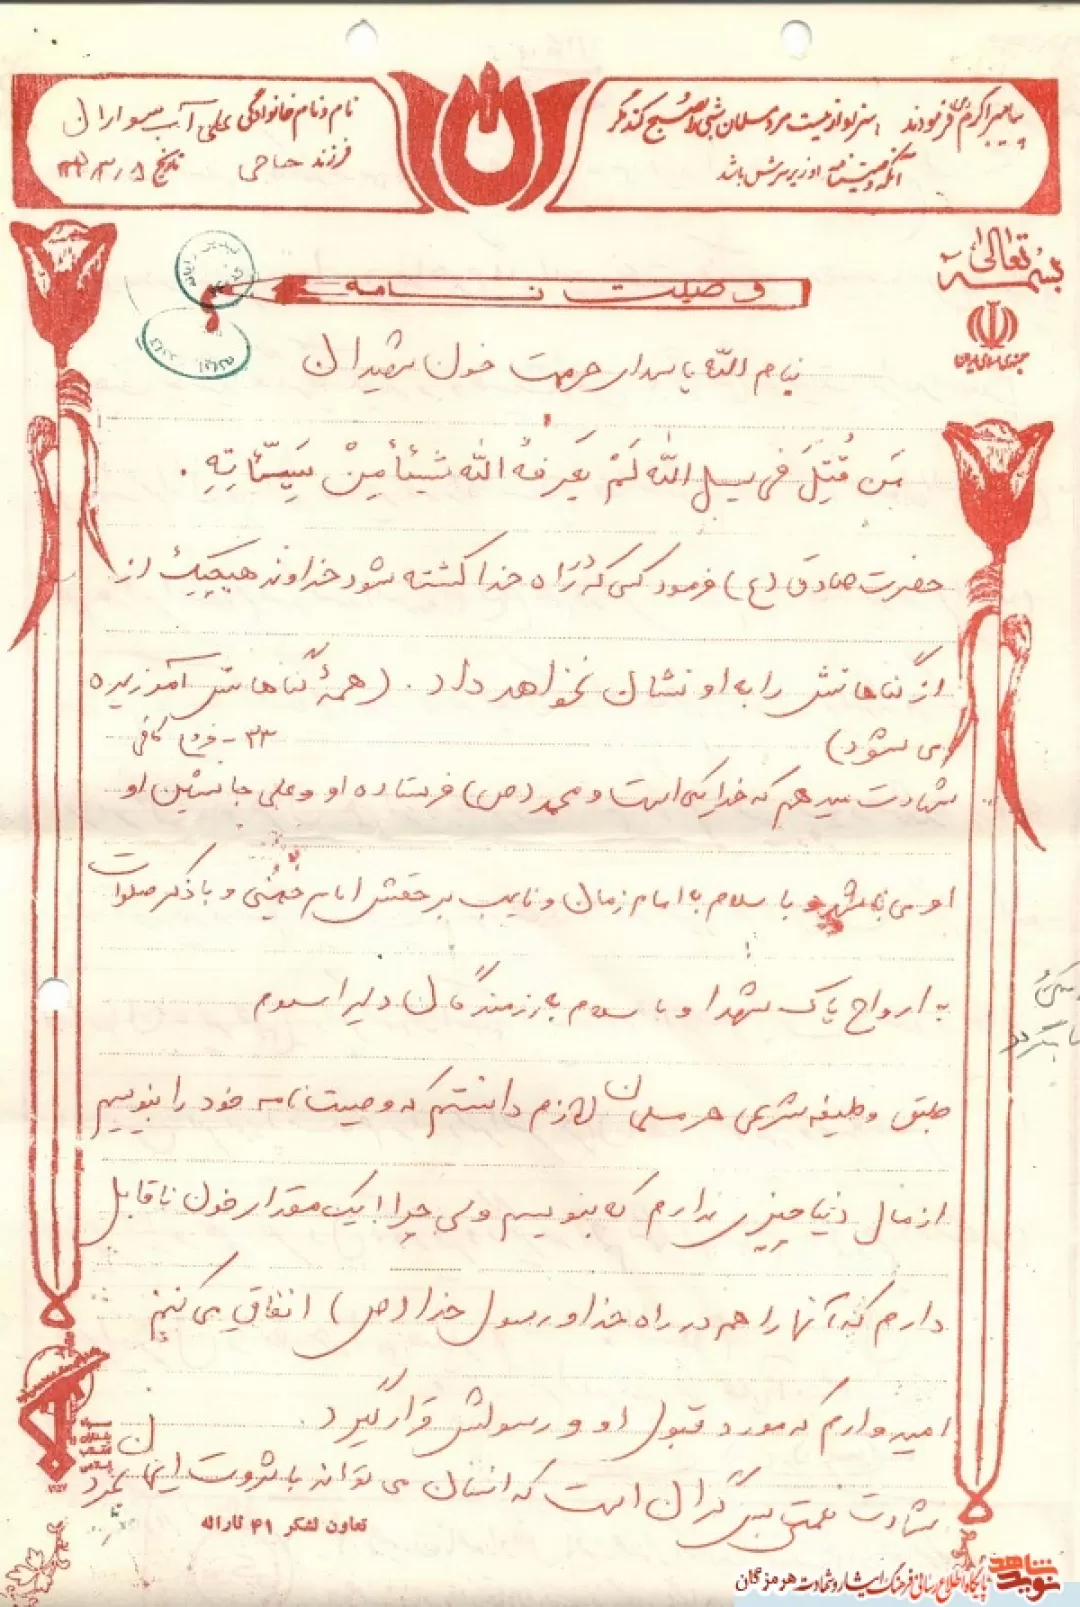 پیامبر اکرم فرمودند: سزاوار نیست مرد مسلمان شبی را صبح کند مگر
آنکه وصیتنامه او زیر سرش باشد
نام و نام خانوادگی علی آب سواران
فرزند حاجی تاریخ
بسمه تعالی
جمهوری اسلامی ایران
وصیت نامه
بنام الله پاسدار حرمت خون شهیدان
مَن قُتِلَ فی سبیل الله لَمْ یَعرِفهُ الله شَیئاً مِنْ سَیِّئاتِهِ .
حضرت صادق (ع) فرمود کسی که در راه خدا کشته شود خداوند هیچیک از
از گناهانش را به او نشان نخواهد داد . (همهٔ گناهانش آمرزیده
می شود) ۳۳ - فروع کافی
شهادت میدهم که خدا یکی است و محمد (ص) فرستاده او و علی جانشین او
او می باشد و با سلام به امام زمان و نایب بر حقش امام خمینی و با ذکر صلوات
به ارواح پاک شهدا و با سلام به رزمندگان دلیر اسلام
طبق وظیفه شرعی هر مسلمان لازم دانستم که وصیت نامه خود را بنویسم
از مال دنیا چیزی ندارم که بنویسم ولی چرا یک مقدار خون ناقابل
دارم که آنها را هم در راه خدا و رسول خدا (ص) انفاق می کنم
امیدوارم که مورد قبول او و رسولش قرار گیرد .
شهادت نعمتی بس گران است که انسان می تواند با ثروت ایمان بخرد
تعاون لشکر ۴۱ ثاراله
نوید شاهد
پایگاه اطلاع رسانی فرهنگ ایثار و شهادت هرمزگان